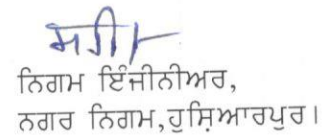 ਸਹੀ/-
ਨਿਗਮ ਇੰਜੀਨੀਅਰ,
ਨਗਰ ਨਿਗਮ,ਹੁਸ਼ਿਆਰਪੁਰ।